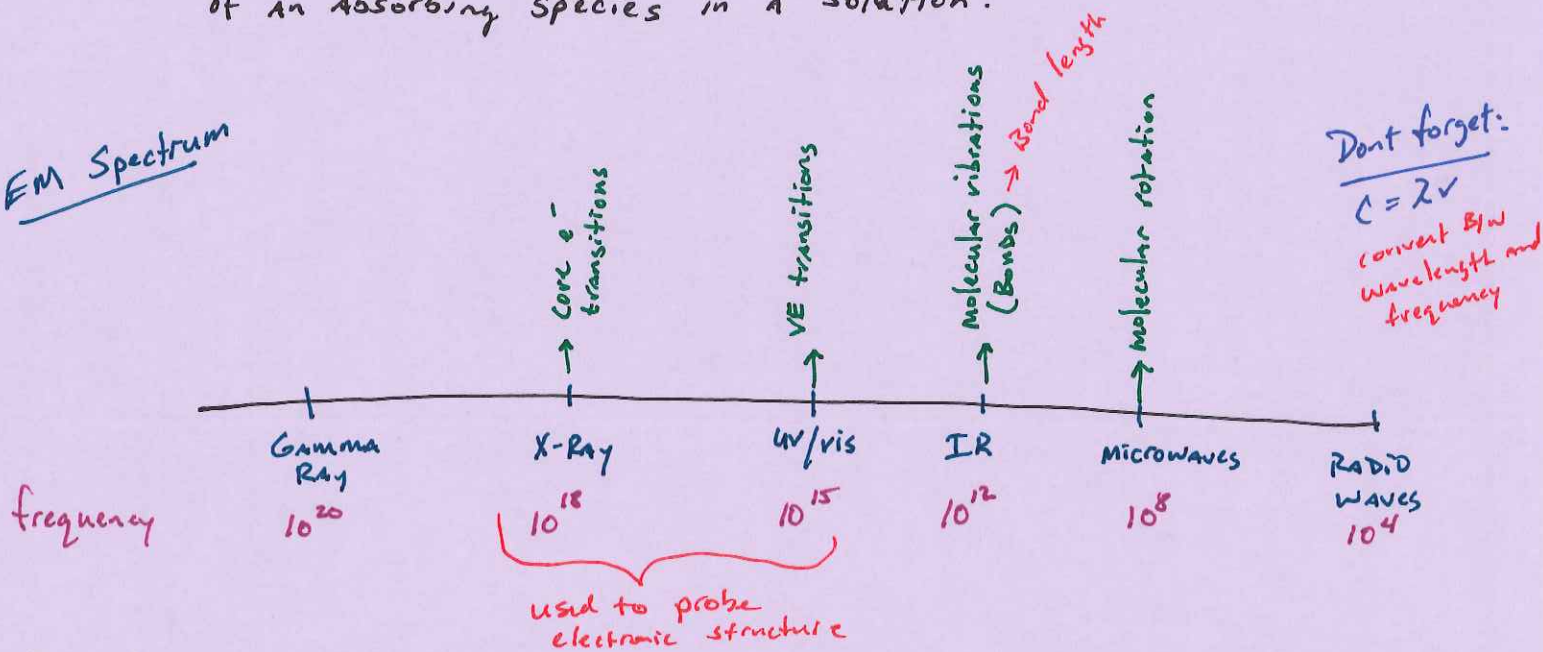 of an absorbing species in a solution.
EM Spectrum
→ core e⁻
transitions
→ VE transitions
→ molecular vibrations
(Bonds) → Bond length
→ molecular rotation
Dont forget:
c = λν
convert B/w
wavelength and
frequency
GAMMA
RAY
X-RAY
UV/vis
IR
MICROWAVES
RADIO
WAVES
frequency
10²⁰
10¹⁸
10¹⁵
10¹²
10⁸
10⁴
used to probe
electronic structure